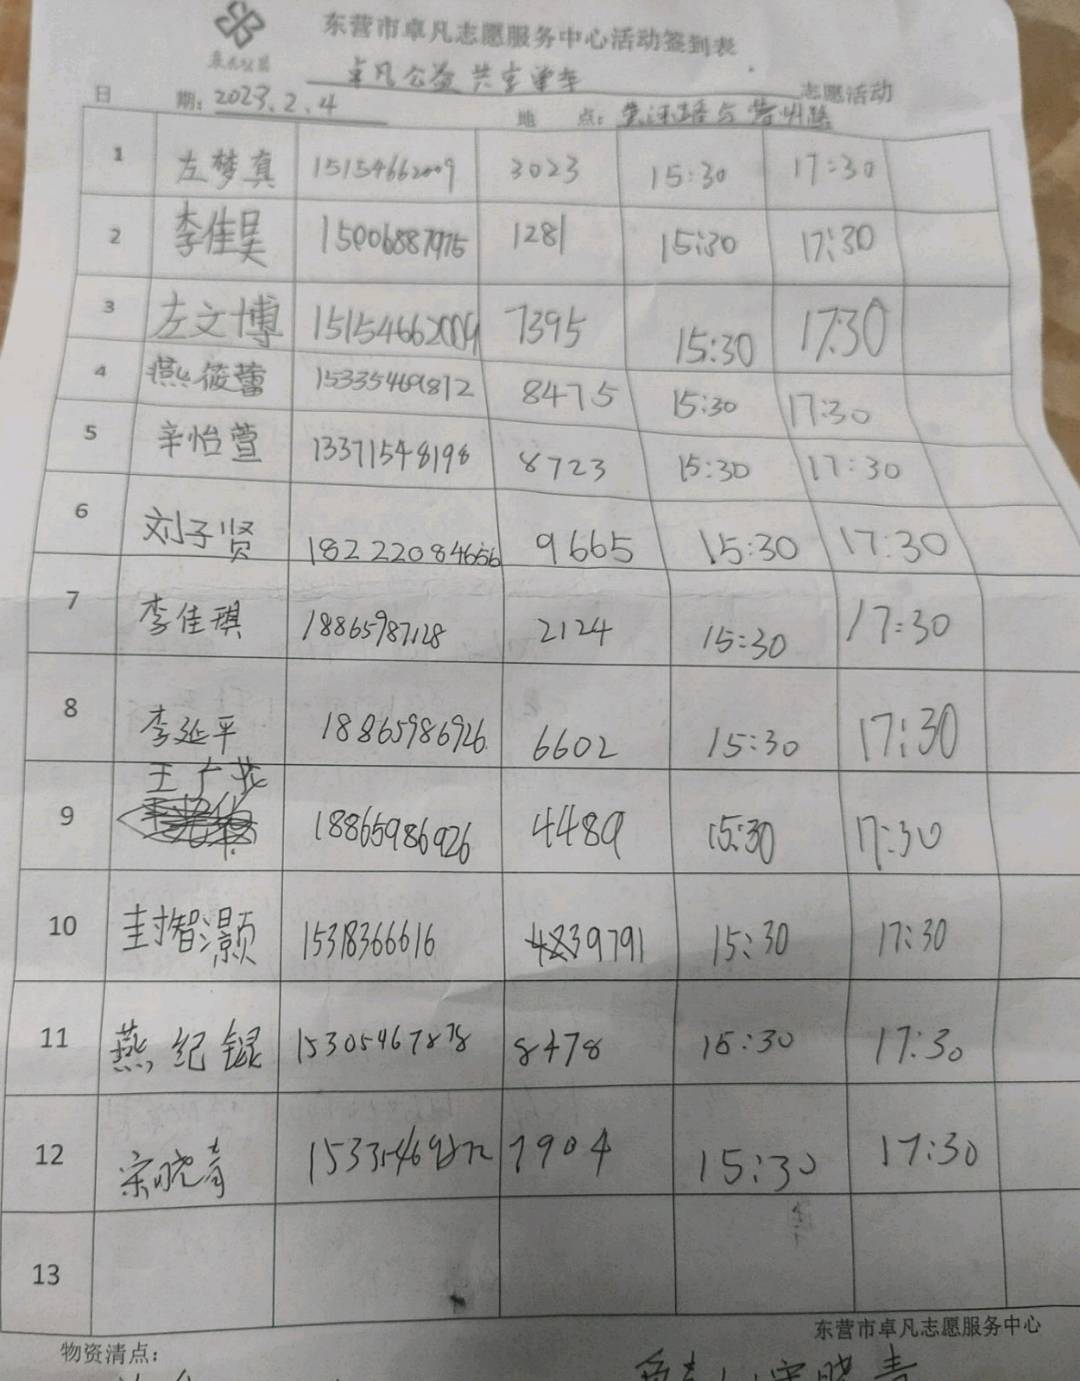 东营市卓凡志愿服务中心活动签到表
卓凡公益
卓凡公益 共享单车 志愿活动
日 期：2023.2.4 地 点：黄河路与登州路
1 左梦真 15154662009 3023 15:30 17:30
2 李佳昊 15006887975 1281 15:30 17:30
3 左文博 15154662009 7395 15:30 17:30
4 燕筱蕾 15335469872 8475 15:30 17:30
5 辛怡萱 13371548198 8723 15:30 17:30
6 刘子贤 18222084656 9665 15:30 17:30
7 李佳琪 18865987128 2124 15:30 17:30
8 李延平 18865986926 6602 15:30 17:30
9 王广花 18865986926 4489 15:30 17:30
10 封智灏 15318366616 9791 15:30 17:30
11 燕纪锟 15305467878 8478 15:30 17:30
12 宋晓青 15335469872 7904 15:30 17:30
13
东营市卓凡志愿服务中心
物资清点：
宋晓青